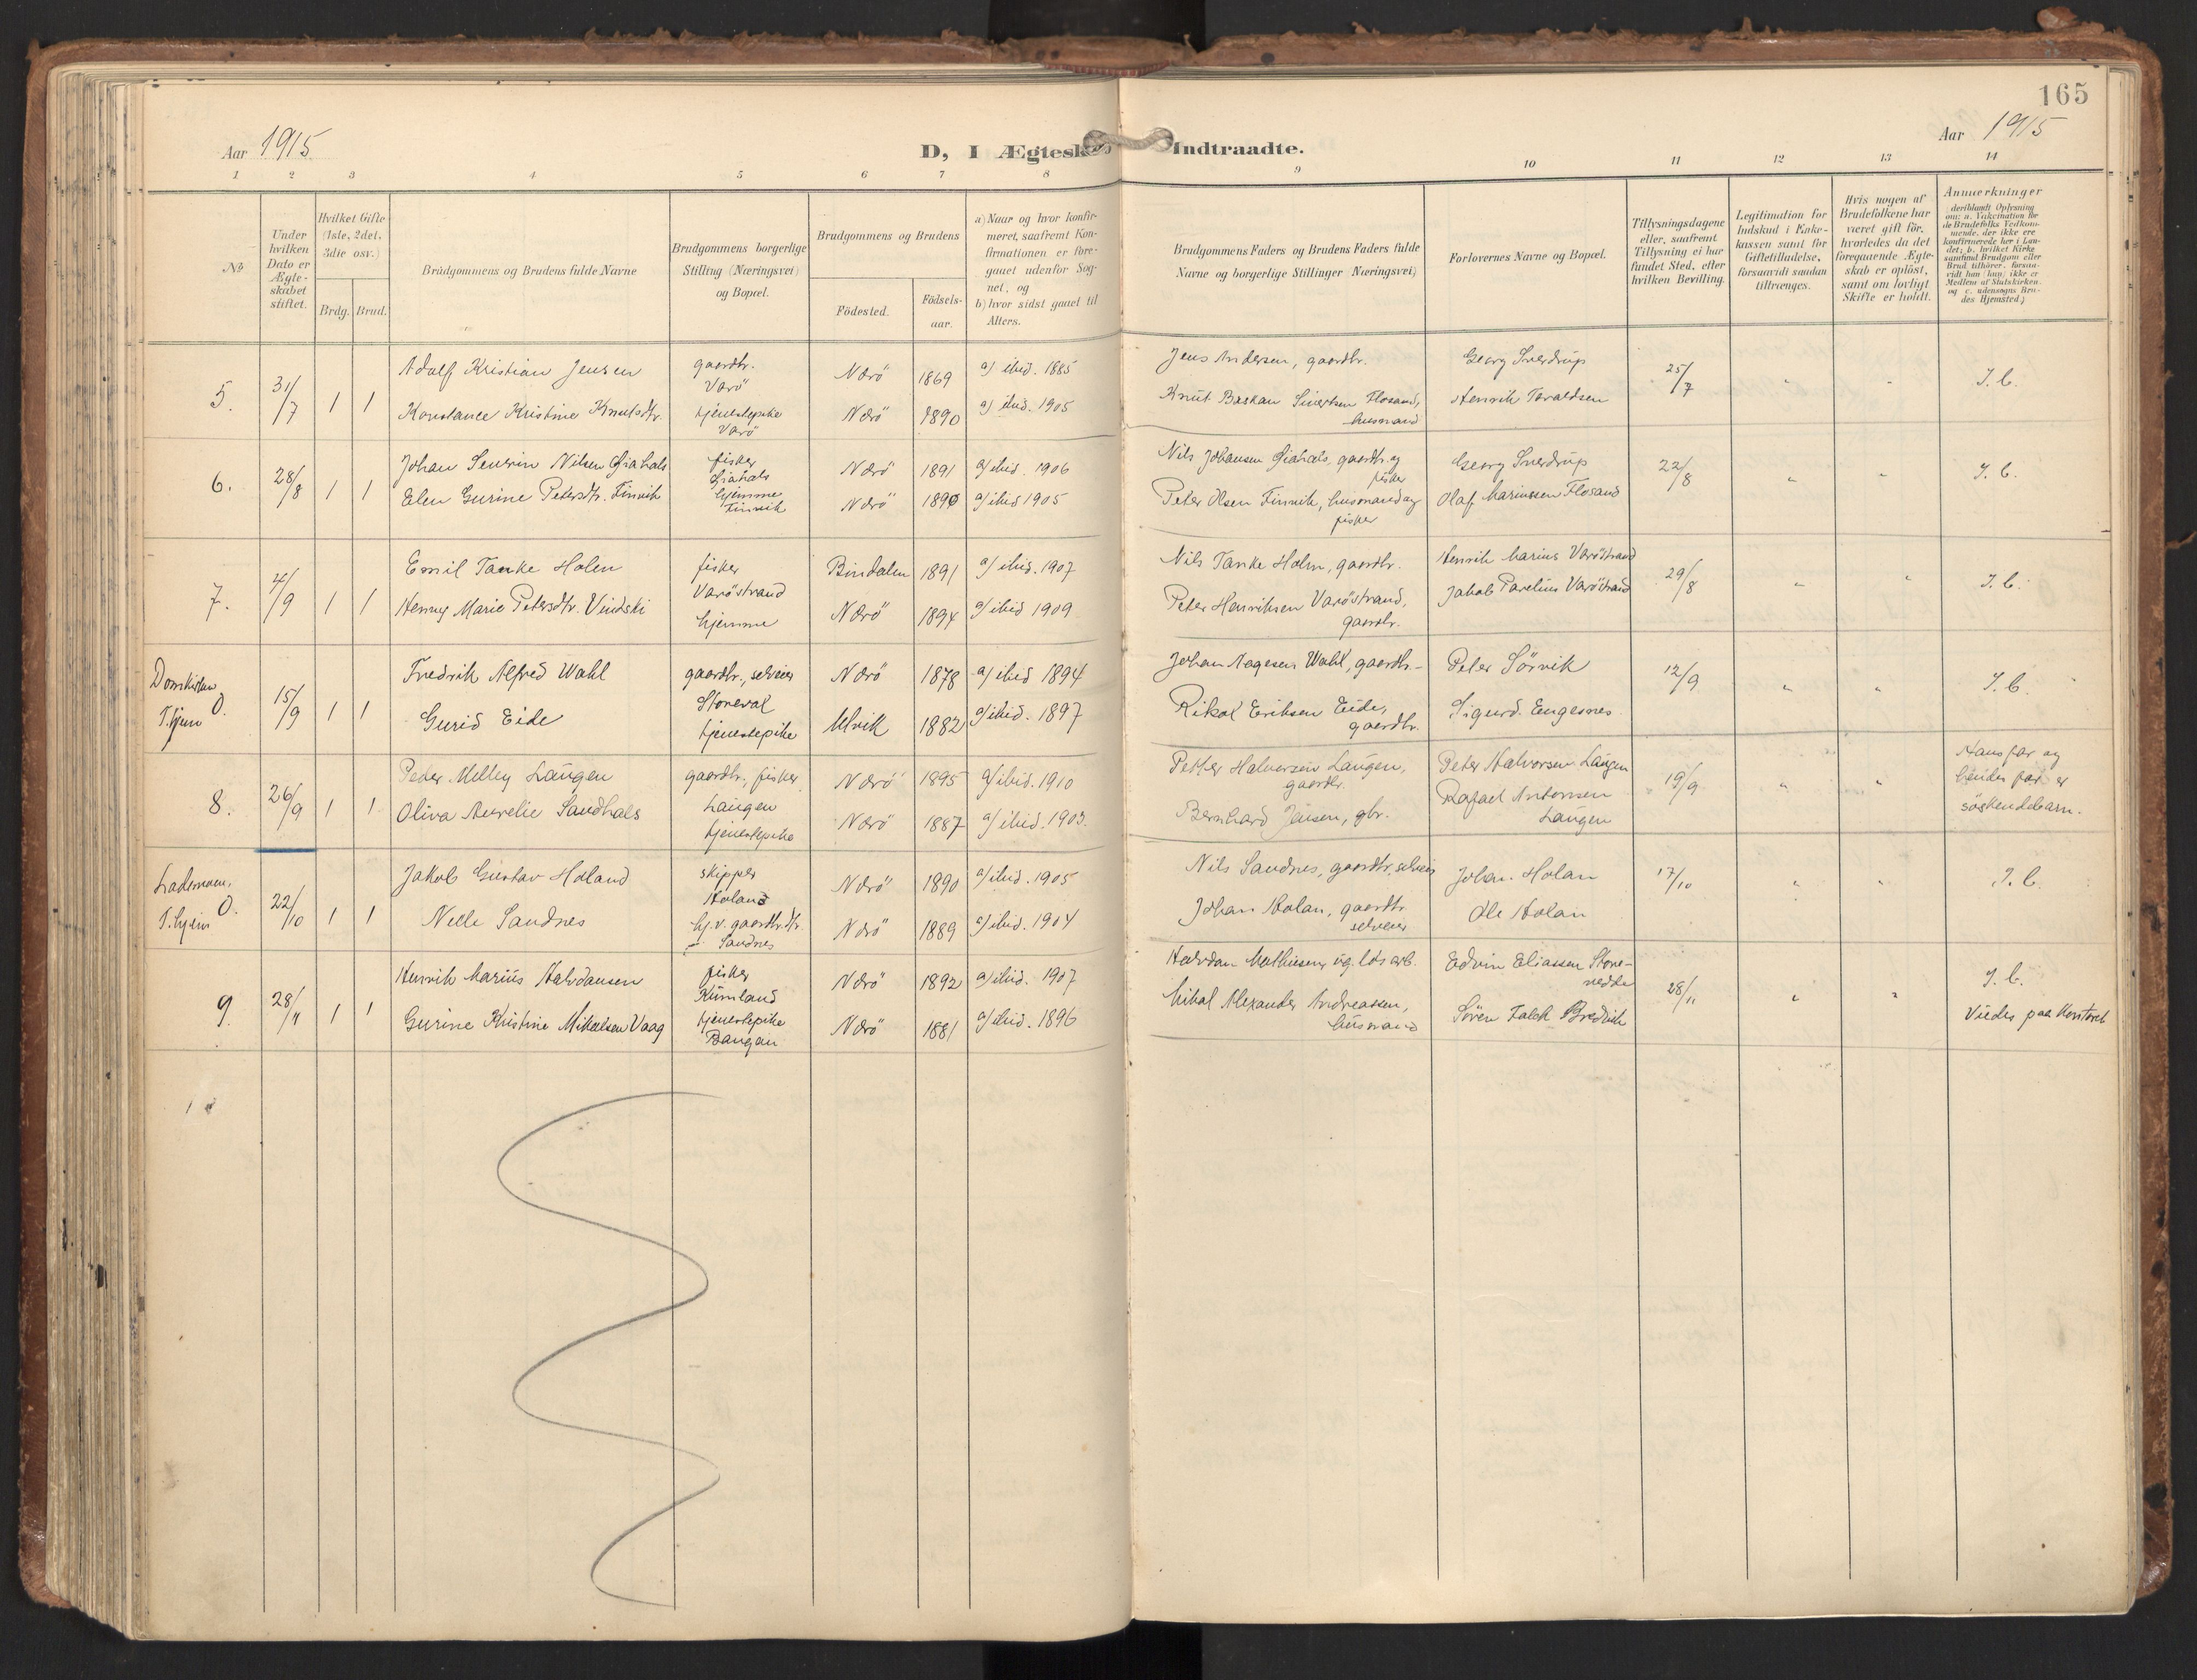 165
Aar 1915
D, I Ægtesk Indtraadte.
Aar 1915
1 2 3 4 5 6 7 8 9 10 11 12 13 14
No
Under hvilken Dato er Ægteskabet stiftet.
Hvilket Gifte (1ste, 2det, 3die osv.)
Brdg. Brud.
Brudgommens og Brudens fulde Navne
Brudgommens borgerlige Stilling (Næringsvei) og Bopæl.
Brudgommens og Brudens
Födested.
Födselsaar.
a) Naar og hvor konfirmeret, saafremt Konfirmationen er foregaaet udenfor Sognet, og
b) hvor sidst gaaet til Alters.
Brudgommens Faders og Brudens Faders fulde Navne og borgerlige Stillinger (Næringsvei)
Forlovernes Navne og Bopæl.
Tillysningsdagene eller, saafremt Tillysning ei har fundet Sted, efter hvilken Bevilling.
Legitimation for Indskud i Enkekassen samt for Giftetilladelse, forsaavidt saadan tiltrænges.
Hvis nogen af Brudefolkene har været gift för, hvorledes da det foregaaende Ægteskab er oplöst, samt om lovligt Skifte er holdt.
Anmærkninger
(deriblandt Oplysning om: a. Vakcination for de Brudefolks Vedkommende, der ikke ere konfirmerede her i Landet; b. hvilket Kirkesamfund Brudgom eller Brud tilhörer, forsaavidt han (hun) ikke er Medlem af Statskirken, og c. udensogns Brudes Hjemsted.)
5. 31/7 1 1 Adolf Kristian Jensen gaardbr. Varö Nærö 1869 a) ibid. 1885 Jens Andersen, gaardbr. Georg Sverdrup 25/7 " " I. b.
Konstance Kristine Knutsdtr. tjenestepike Varö Nærö 1890 a) ibid. 1905 Knut Baskan Sivertsen Flosand, husmand Henrik Taraldsen
6. 28/8 1 1 Johan Severin Nilsen Giahals fisker Giahals Nærö 1891 a) ibid. 1906 Nils Johansen Giahals, gaardbr. og fisker Georg Sverdrup 22/8 " " I. b.
Elen Gurine Petersdtr. Finvik hjemme Finvik Nærö 1890 a) ibid 1905 Peter Olsen Finvik, husmand og fisker Olaf Mariussen Flosand
7. 4/9 1 1 Emil Tanke Holen fisker Varöstrand Bindalen 1891 a) ibid. 1907 Nils Tanke Holm, gaardbr. Henrik Marius Varöstrand 29/8 " " I. b.
Henny Marie Petersdtr. Vindski hjemme Nærö 1894 a) ibid 1909 Peter Henriksen Varöstrand, gaardbr. Jakob Parelius Varöstrand
Domkirken T.hjem 0. 15/9 1 1 Fredrik Alfred Wahl gaardbr., selveier Storeval Nærö 1878 a) ibid 1894 Johan Aagesen Wahl, gaardbr. Peter Sörvik 12/9 " " I. b.
Gurid Eide tjenestepike Ulvik 1882 a) ibid. 1897 Rikol Eriksen Eide, gaardbr. Sigurd Engesnes
8. 26/9 1 1 Peter Melley Laugen gaardbr., fisker Laugen Nærö 1895 a) ibid. 1910 Petter Halvorsen Laugen, gaardbr. Peter Halvorsen Laugen 19/9 " " Hans far og hendes far er söskendebarn.
Oliva Aurelie Sandhals tjenestepike Nærö 1887 a) ibid. 1903. Bernhard Jensen, gbr. Rafael Antonsen Laugen
Lademoen, T.hjem 0. 22/10 1 1 Jakob Gustav Holand skipper Holand Nærö 1890 a) ibid. 1905 Nils Sandnes, gaardbr. selveier Johan Holan 17/10 " " I. b.
Nelle Sandnes hj.v. gaardbr.dtr. Sandnes Nærö 1889 a) ibid. 1904 Johan Holan, gaardbr. selveier Ole Holan
9. 28/11 1 1 Henrik Marius Halvdansen fisker Kumland Nærö 1892 a) ibid. 1907 Halvdan Mathiesen, ug. lös arb. Edvin Eliassen Storevedde 28/11 " " I. b.
Gurine Kristine Mikalsen Vaag tjenestepike Baugan Nærö 1881 a) ibid. 1896 Mikal Alexander Andreassen, husmand Sören Falck Bredvik Viedes paa Kontoret